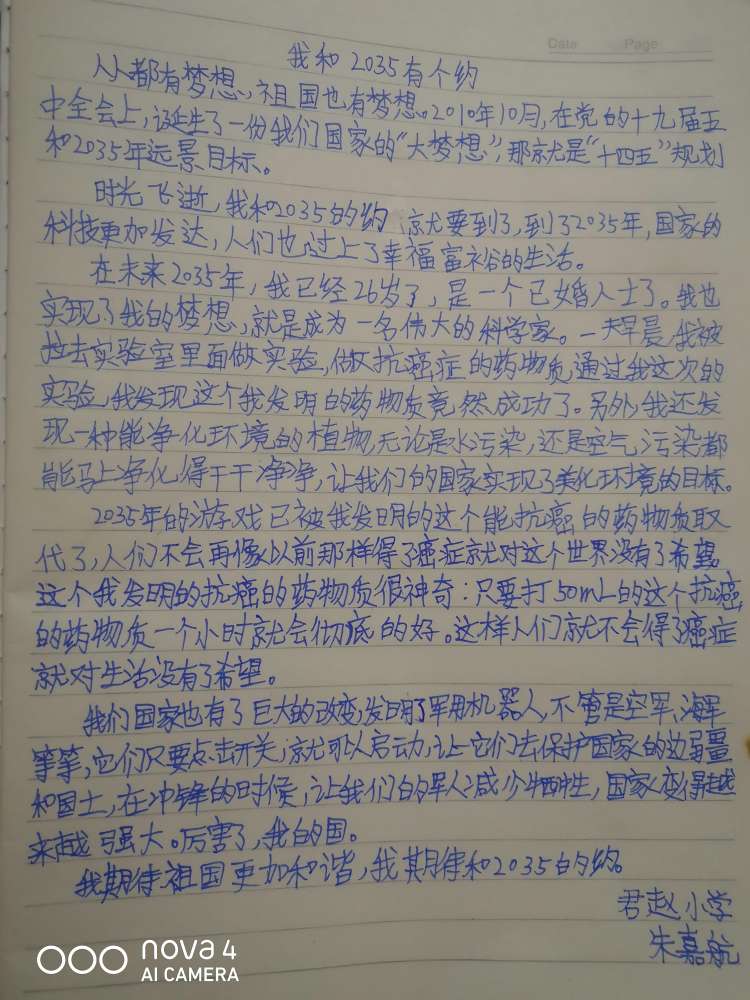 Date Page
我和2035有个约
人人都有梦想,祖国也有梦想。2010年10月,在党的十九届五
中全会上,诞生了一份我们国家的“大梦想”,那就是“十四五”规划
和2035年远景目标。
时光飞逝,我和2035的约就要到了,到了2035年,国家的
科技更加发达,人们也过上了幸福富裕的生活。
在未来2035年,我已经26岁了,是一个已婚人士了。我也
实现了我的梦想,就是成为一名伟大的科学家。一天早晨,我被
拉去实验室里面做实验,做抗癌症的药物质,通过我这次的
实验,我发现这个我发明的药物质竟然成功了。另外,我还发
现一种能净化环境的植物,无论是水污染,还是空气污染都
能马上净化得干干净净,让我们的国家实现了美化环境的目标。
2035年的游戏已被我发明的这个能抗癌的药物质取
代了,人们不会再像以前那样得了癌症就对这个世界没有了希望。
这个我发明的抗癌的药物质很神奇:只要打50mL的这个抗癌
的药物质一个小时就会彻底的好。这样人们就不会得了癌症
就对生活没有了希望。
我们国家也有了巨大的改变,发明了军用机器人,不管是空军,海军
等等,它们只要点击开关,就可以启动,让它们去保护国家的边疆
和国土,在冲锋的时候,让我们的军人减少牺牲,国家变得越
来越强大。厉害了,我的国。
我期待祖国更加和谐,我期待和2035的约。
君赵小学
朱嘉航
nova 4
AI CAMERA